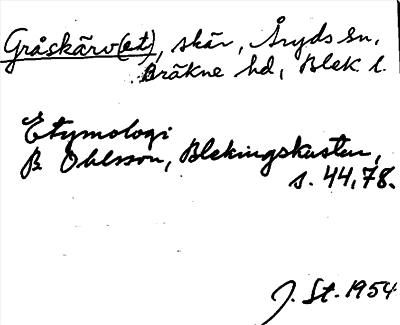 Gråskärv(et), skär, Åryds sn,
Bräkne hd, Blek. l.
Etymologi
B. Ohlsson, Blekingskusten,
s. 44, 78.
J. St. 1954